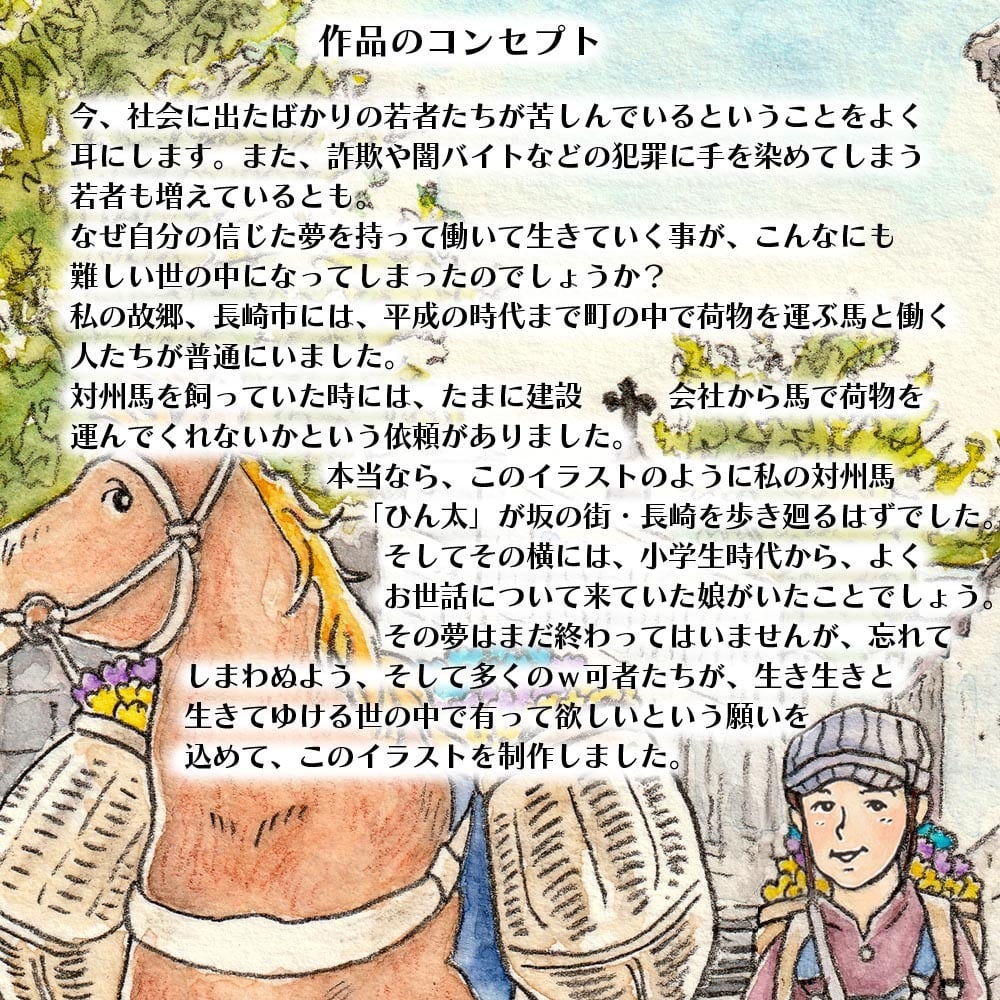 作品のコンセプト
今、社会に出たばかりの若者たちが苦しんでいるということをよく
耳にします。また、詐欺や闇バイトなどの犯罪に手を染めてしまう
若者も増えているとも。
なぜ自分の信じた夢を持って働いて生きていく事が、こんなにも
難しい世の中になってしまったのでしょうか？
私の故郷、長崎市には、平成の時代まで町の中で荷物を運ぶ馬と働く
人たちが普通にいました。
対州馬を飼っていた時には、たまに建設　会社から馬で荷物を
運んでくれないかという依頼がありました。
本当なら、このイラストのように私の対州馬
「ひん太」が坂の街・長崎を歩き廻るはずでした。
そしてその横には、小学生時代から、よく
お世話について来ていた娘がいたことでしょう。
その夢はまだ終わってはいませんが、忘れて
しまわぬよう、そして多くのｗ可者たちが、生き生きと
生きてゆける世の中で有って欲しいという願いを
込めて、このイラストを制作しました。